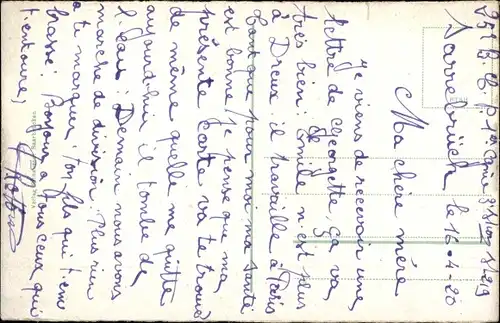 Sarrebrück le 16-4-20
Ma chère mère
Je viens de recevoir une
lettre de Georgette, ça va
très bien. Emile n'est plus
à Dreux, il travaille à Paris
tant que pour moi ma santé
est bonne je pense que ma
présente carte va te trouver
de même quelle me quitte
aujourd'hui il tombe de
l'eau. Demain nous avons
marche de division. Plus rien
a te marquer. ton fils qui t'em
brasse. Bonjour a tous ceux qui
t'entoure,